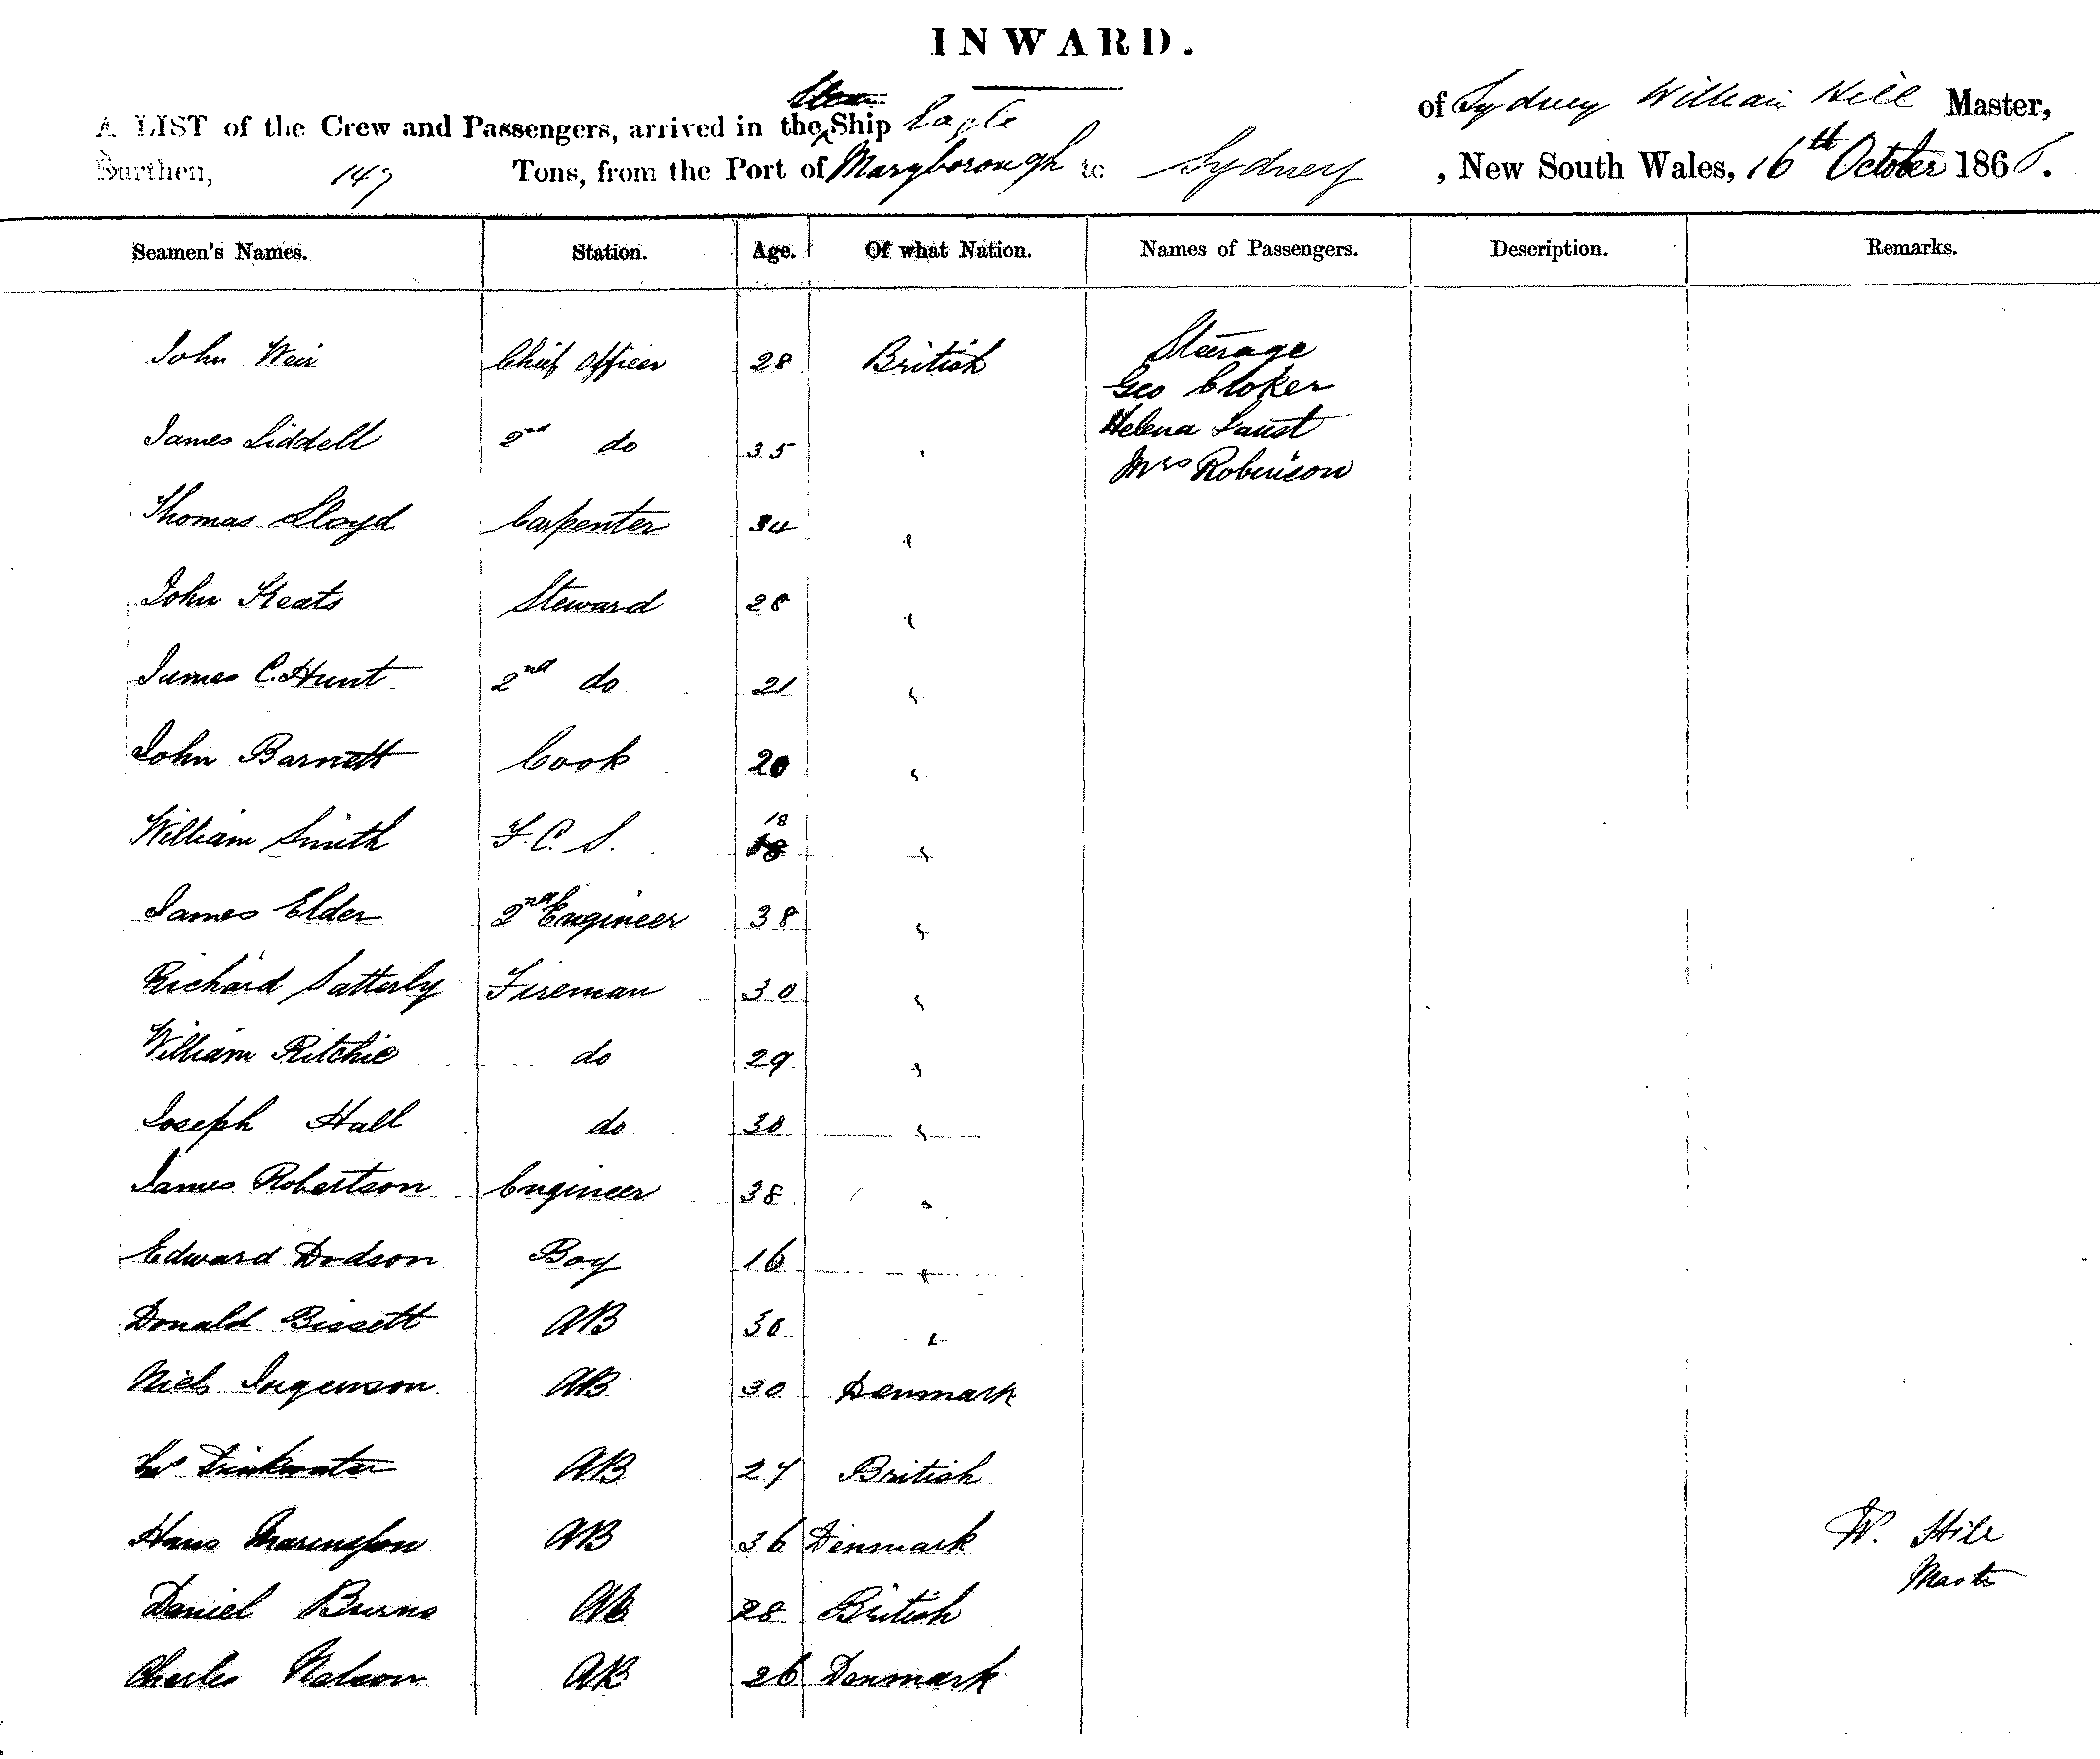 INWARD.
A LIST of the Crew and Passengers, arrived in the Steam Ship Eagle of Sydney William Hill Master,
Burthen, 147 Tons, from the Port of Maryborough to Sydney, New South Wales, 16th October 186
Seamen's Names. Station. Age. Of what Nation. Names of Passengers. Description. Remarks.
Steerage
John Weir Chief Officer 28 British
Geo Cloker
Helena Faust
James Liddell 2nd do 35 "
Mrs Robinson
Thomas Lloyd Carpenter 34 "
John Keats Steward 28 "
James C. Hunt 2nd do 21 "
John Barnett Cook 20 "
William Smith F. C. S. 18 "
James Elder 2nd Engineer 38 "
Richard Satterly Fireman 30 "
William Ritchie do 29 "
Joseph Hall do 30 "
James Robertson Engineer 38 "
Edward Dodson Boy 16 "
Donald Bissett AB 30 "
Niels Ingenson AB 30 Denmark
Drinkwater AB 27 British
Hans AB 36 Denmark
W. Hill
Master
Daniel Burns AB 28 British
Charles Nelson AB 26 Denmark